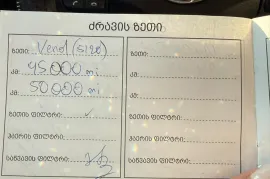 ძრავის ზეთი
ზეთი: Venol (5I20)
კმ: 45.000 mi
კმ: 50000 mi
ზეთის ფილტრი: ✓
ჰაერის ფილტრი:
საწვავის ფილტრი:
ზეთი:
კმ:
კმ:
ზეთის ფილტრი:
ჰაერის ფილტრი:
საწვავის ფილტრი: